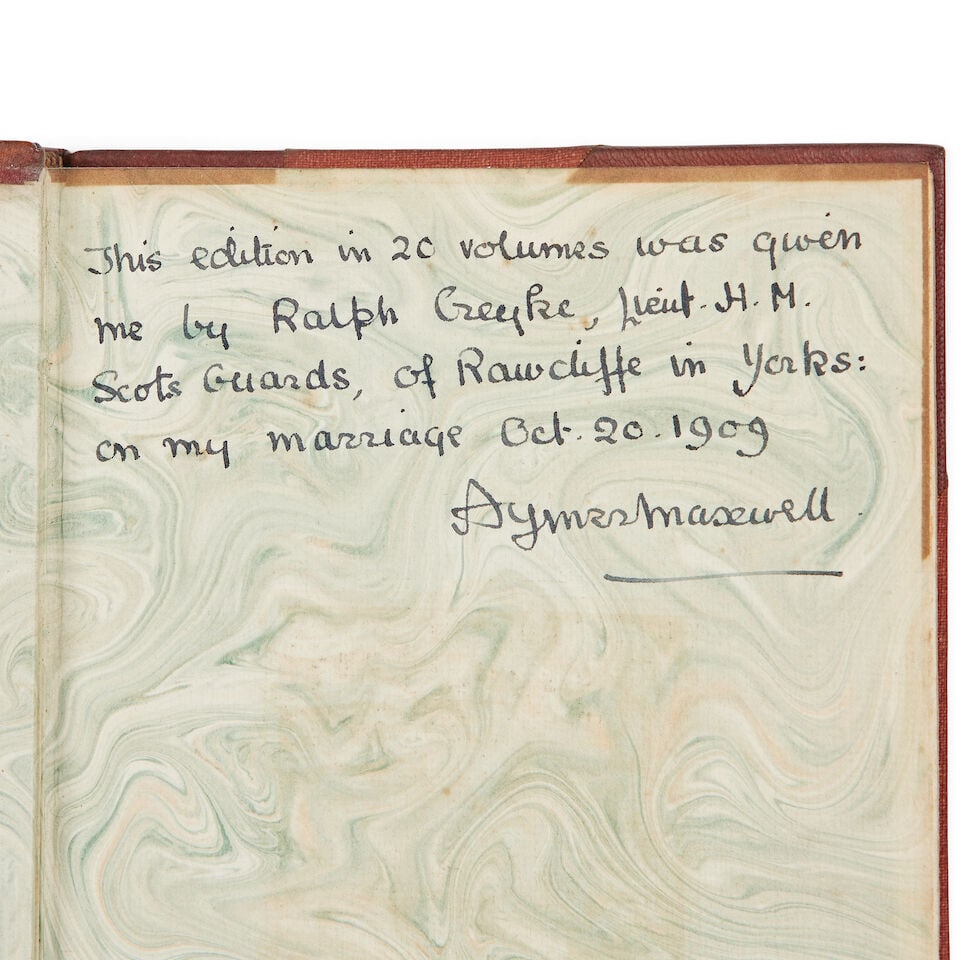 This edition in 20 volumes was given
me by Ralph Creyke, Lieut. H. M.
Scots Guards, of Rawcliffe in Yorks:
on my marriage Oct. 20. 1909
Aymer Maxwell.